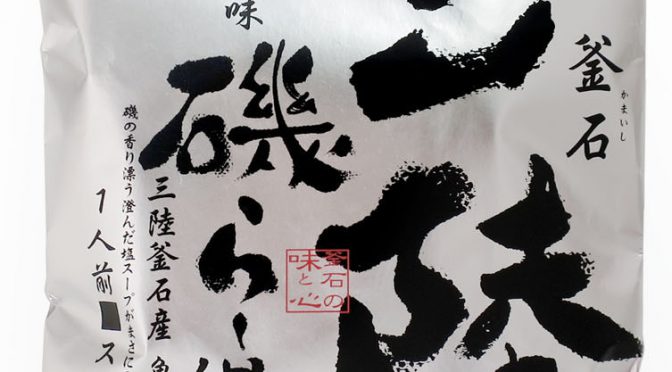 釜石
かまいし
三陸
味
磯らー
釜石の
味と心
三陸釜石産
磯の香り漂う澄んだ塩スープがまさに
1人前 ス